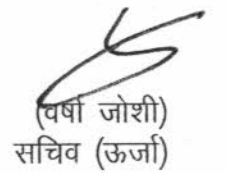 (वर्षा जोशी)
सचिव (ऊर्जा)